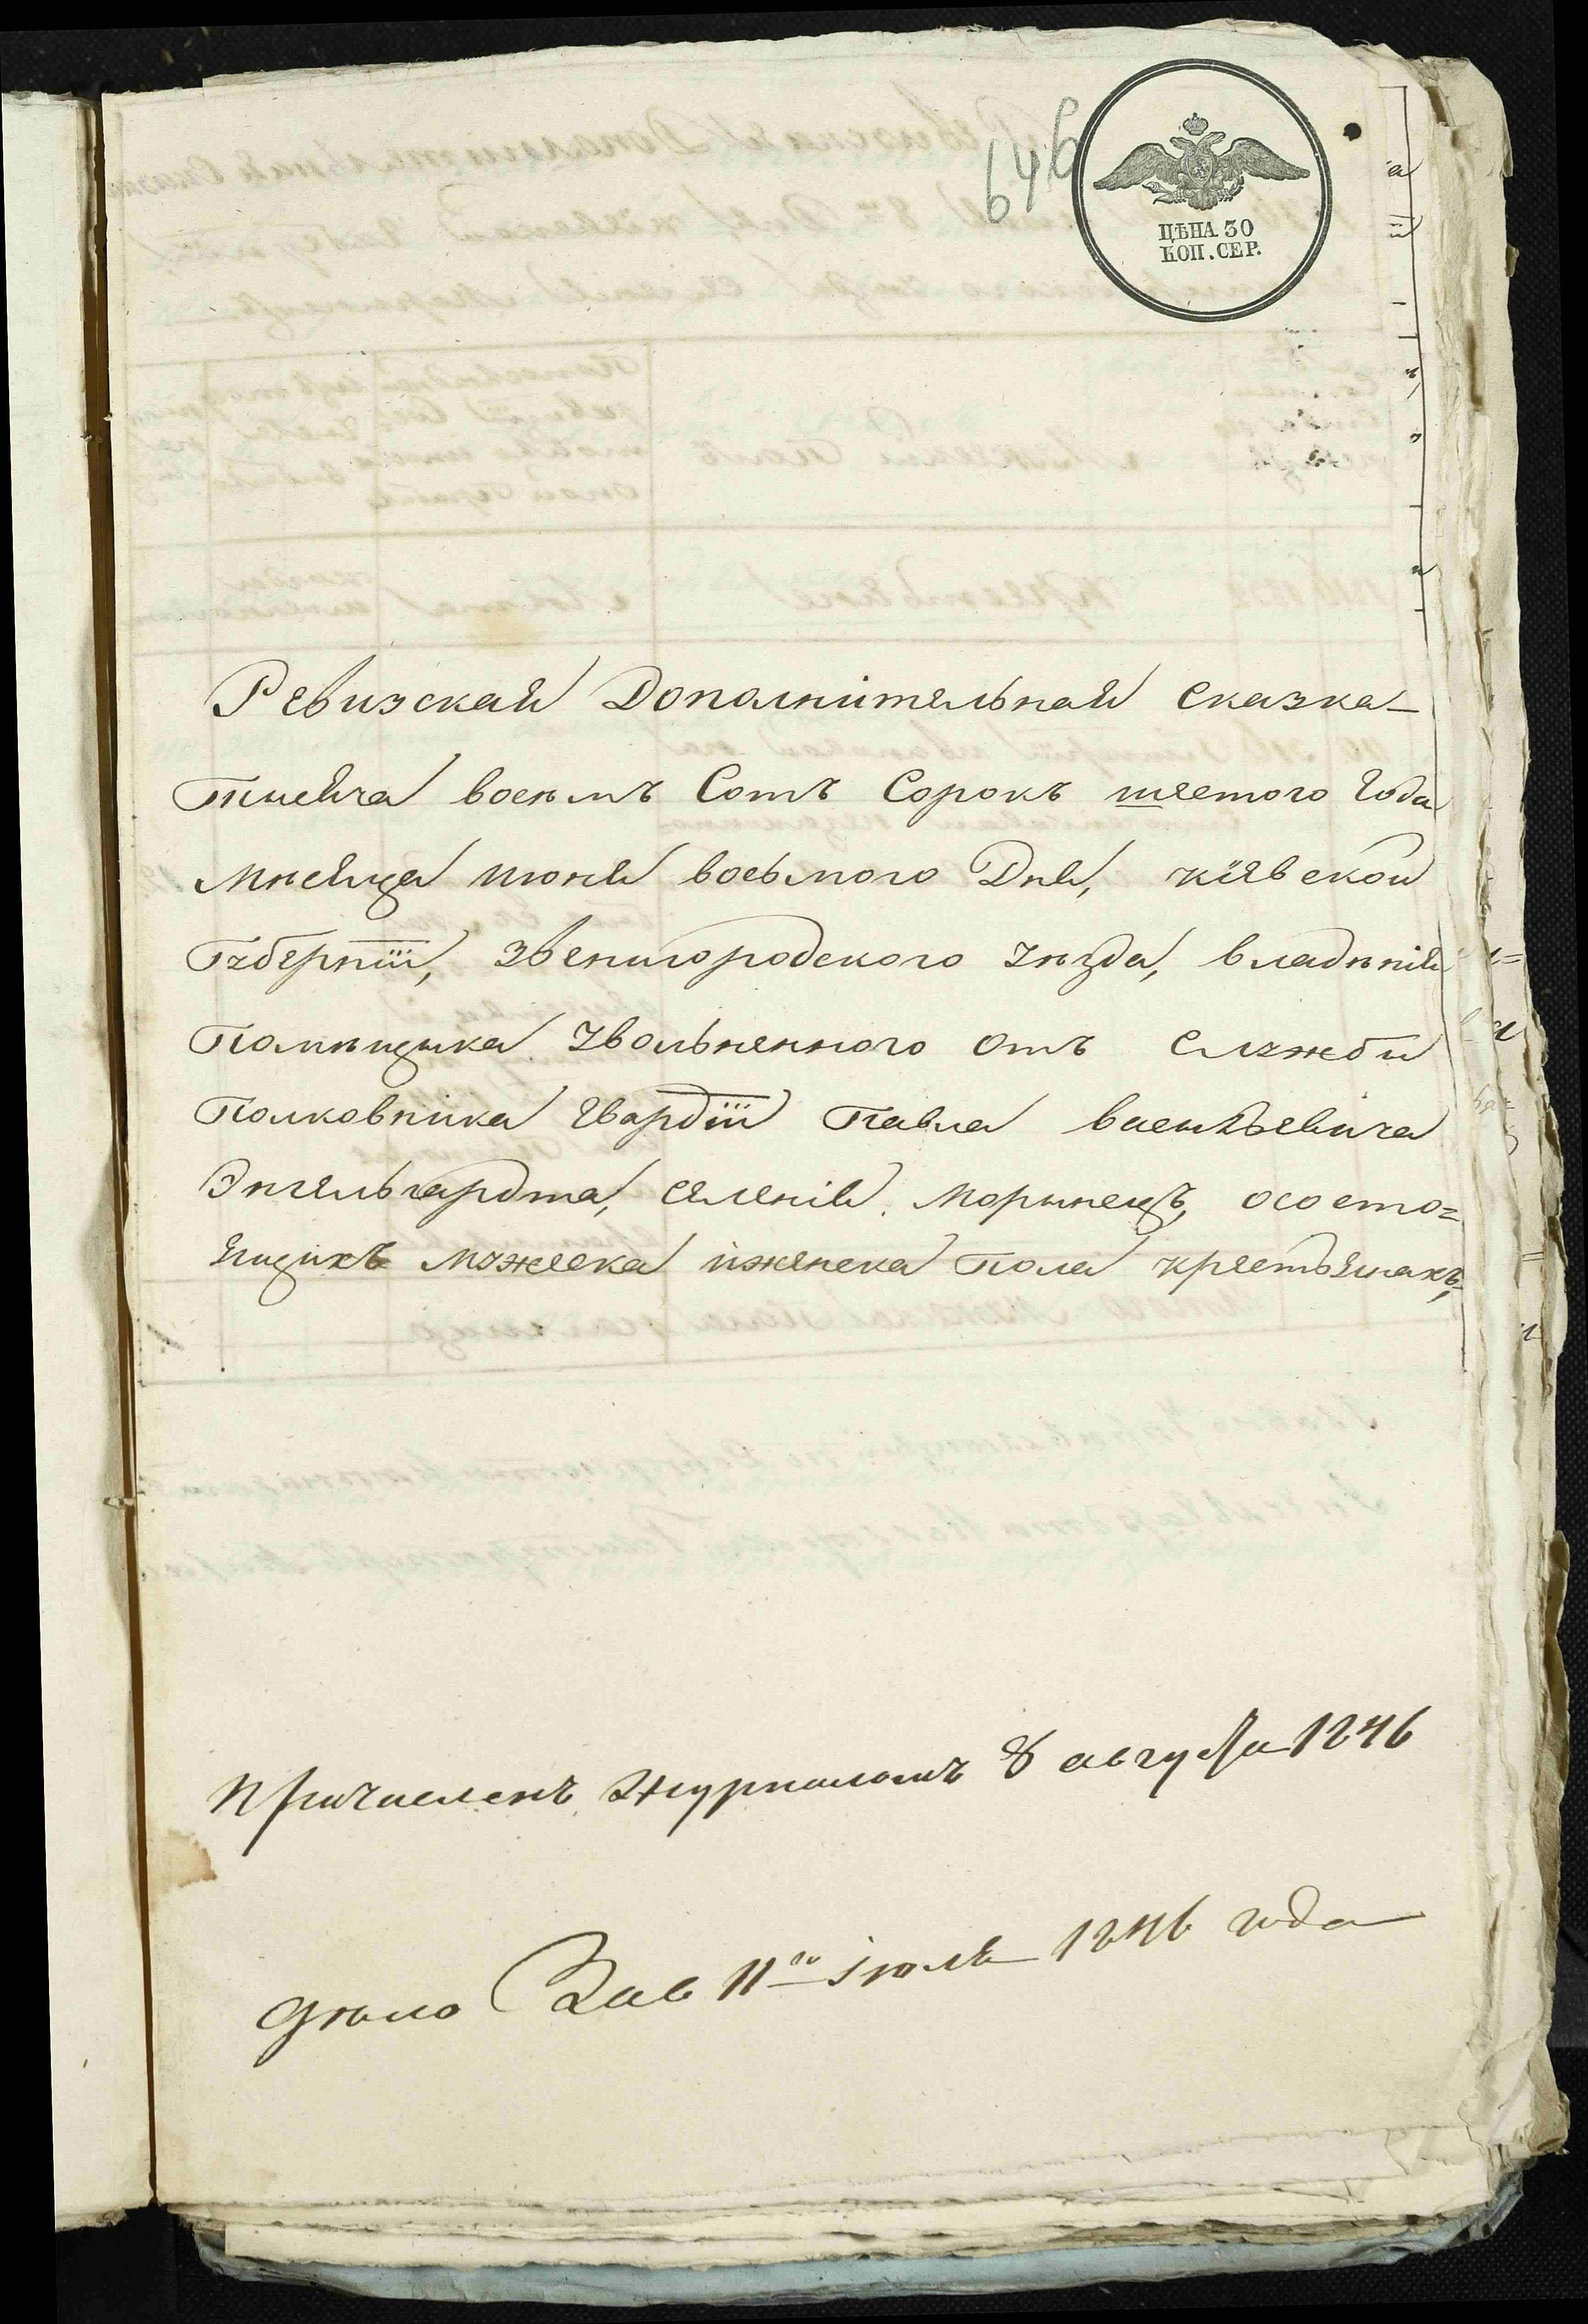 646
ЦѢНА 30
КОП. СЕР.
Ревизская Дополнительная сказка
тысяча воемъ Сотъ Сорокъ шестого года
мѣсяца июня восьмого Дня, кіевской
губерніи, звенигородского уѣзда, владѣнія
помѣщика увольненного отъ службы
полковника гвардіи Павла васильевича
Энгельгардта, селенія Морынецъ, осостоящихъ
мужеска иженска пола крестьянахъ,
Причисленъ Журналомъ 8 августа 1846
дѣло 11го іюля 1846 года